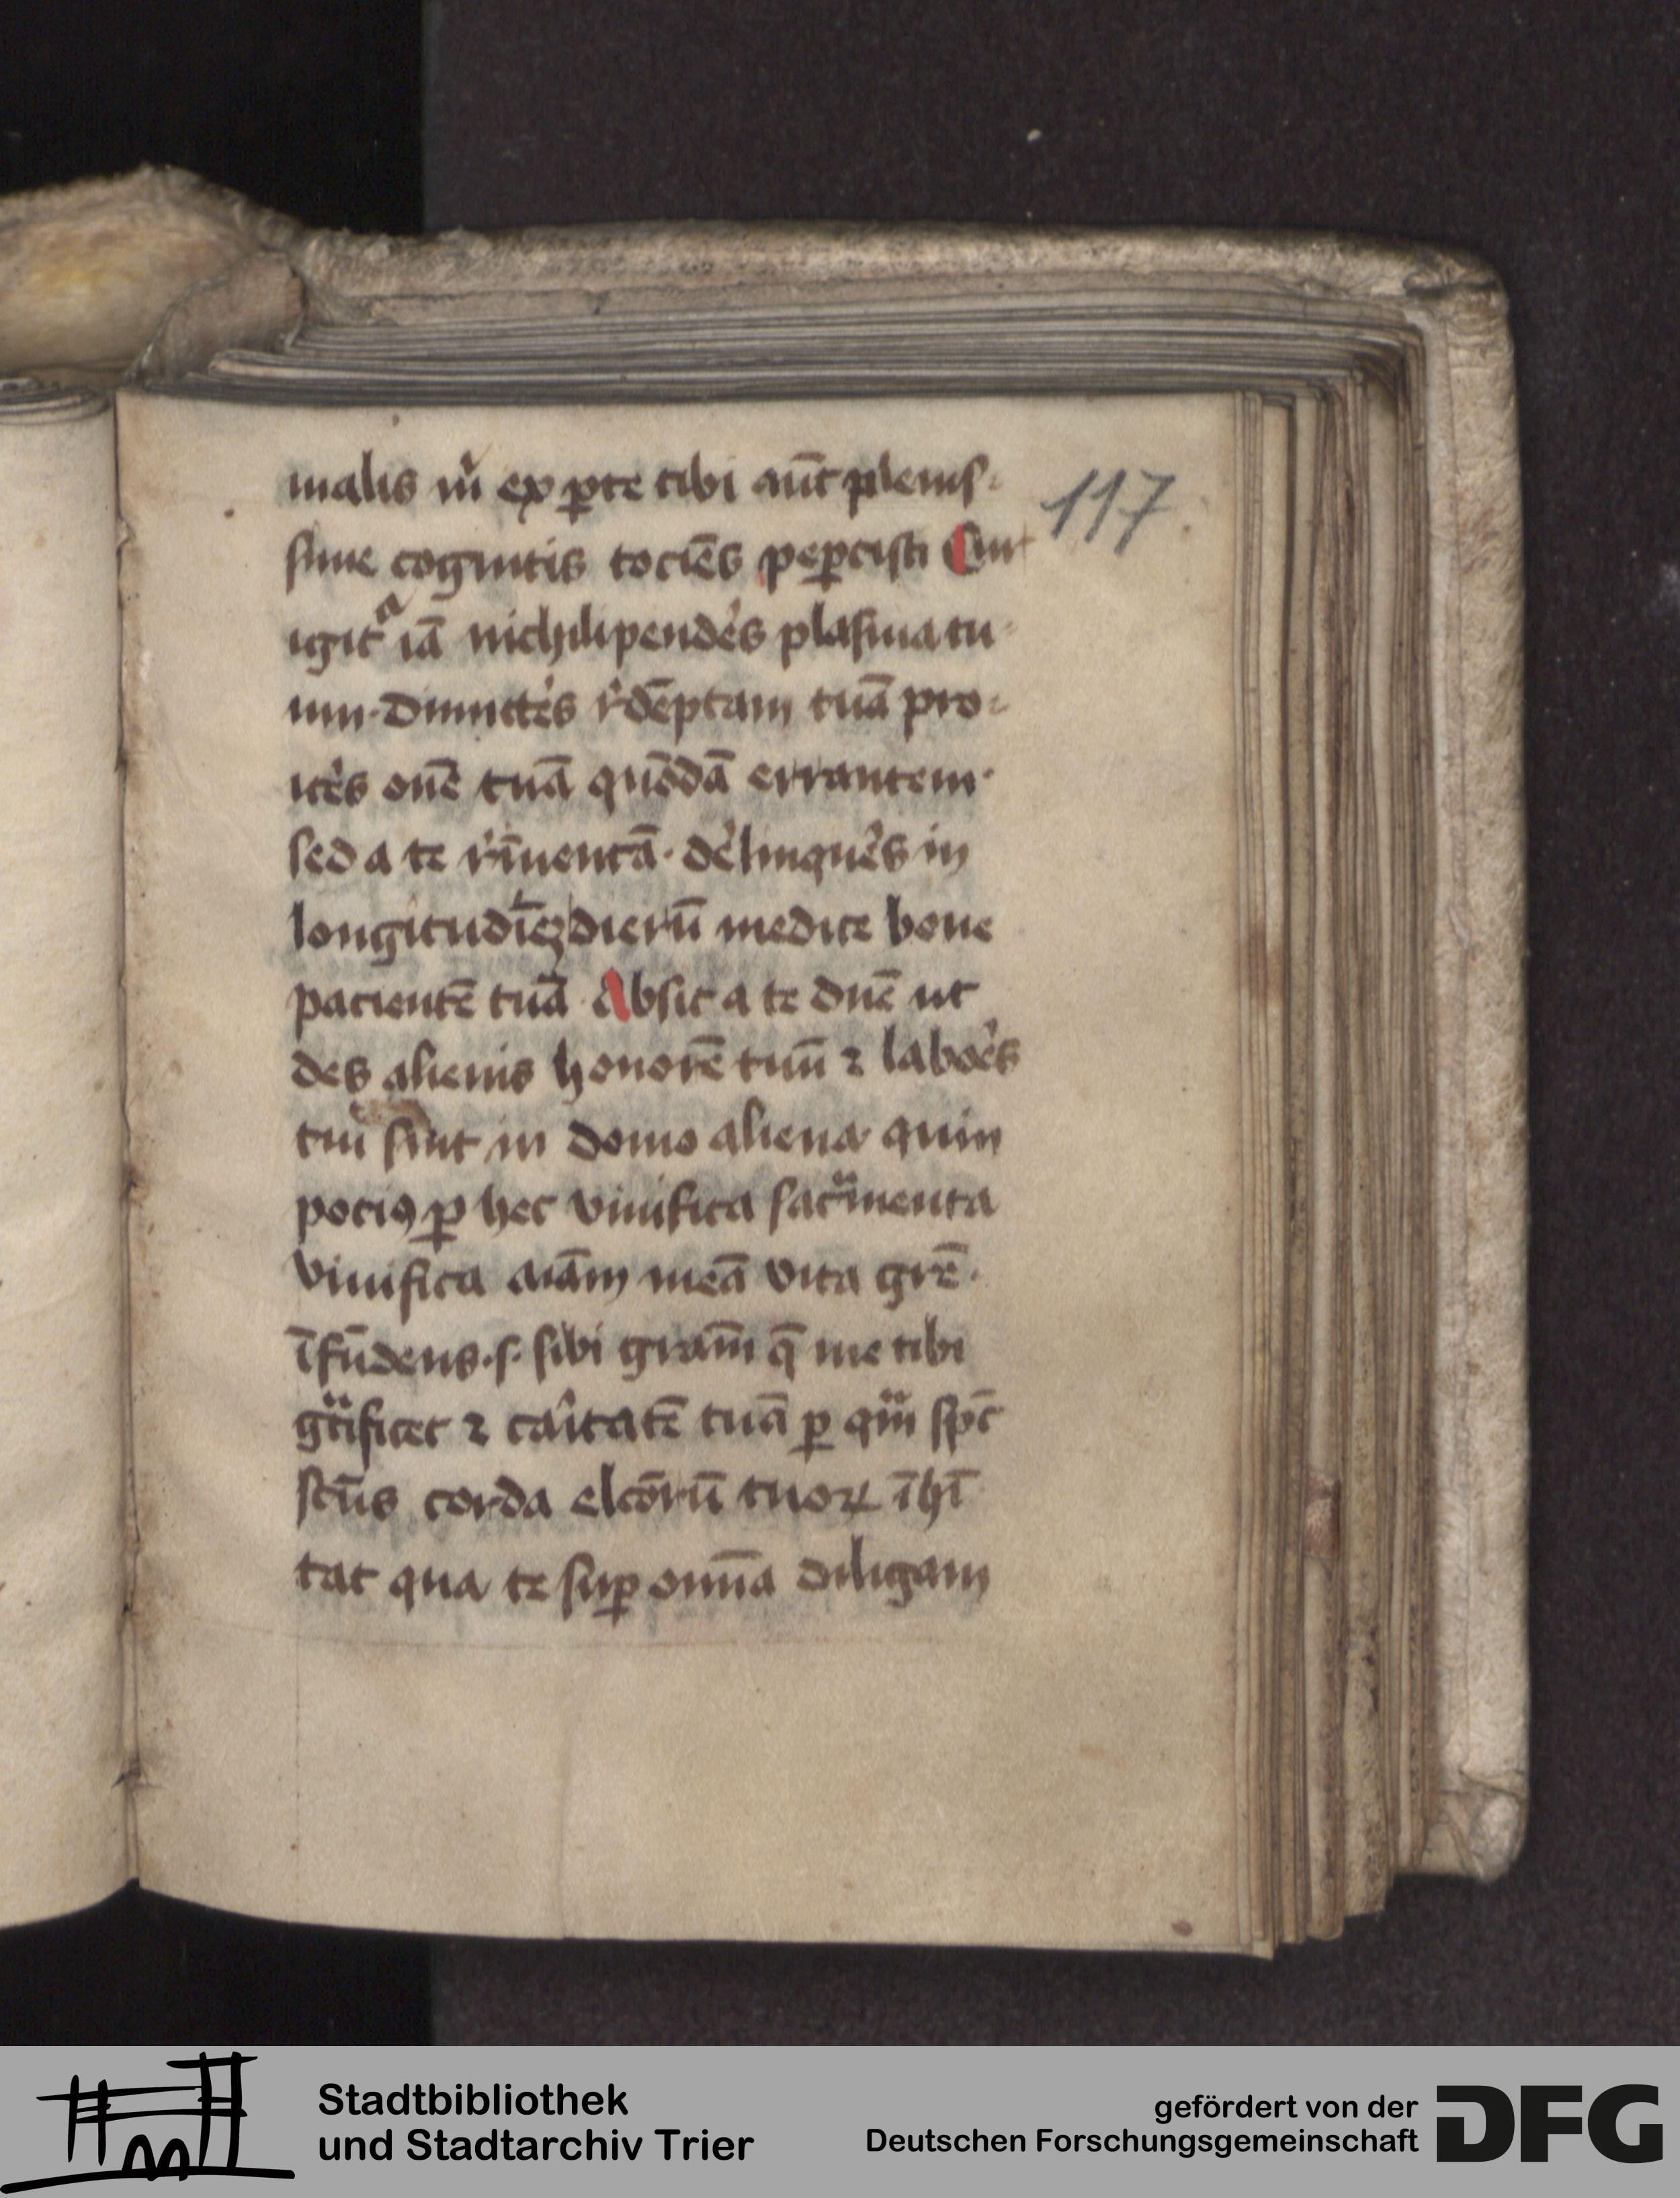 malis m̄ ex ꝑte tibi aūt plenis-
sime cognitis tociēs peꝑcisti Cur
igitᵃ iā nichilipendēs plasma tu-
um· Dimittēs r̓dēptam tuā pro-
icēs ouē tuā quōdā errantem·
sed a te r̓īuentā· de̓linquēs in
longitudīeꝫ dierū medice bone
pacientē tuā Absit a te dn̄e ut
des alienis honorē tuū ⁊ laboēs
tui sint in domo aliena quin
pociꝰ ꝑ hec viuifica sacᵃmenta
viuifica aīam meā vita gr̄e·
īfūdens·s· sibi gr̄am q̄ me tibi
gᵃtificet ⁊ caritatē tuā ꝑ qᵃm sp̄c
sc̄us corda elc̄orū tuoꝝ īhī
tat qua te suꝑ omīa diligam
117
Stadtbibliothek
und Stadtarchiv Trier
gefördert von der
Deutschen Forschungsgemeinschaft
DFG